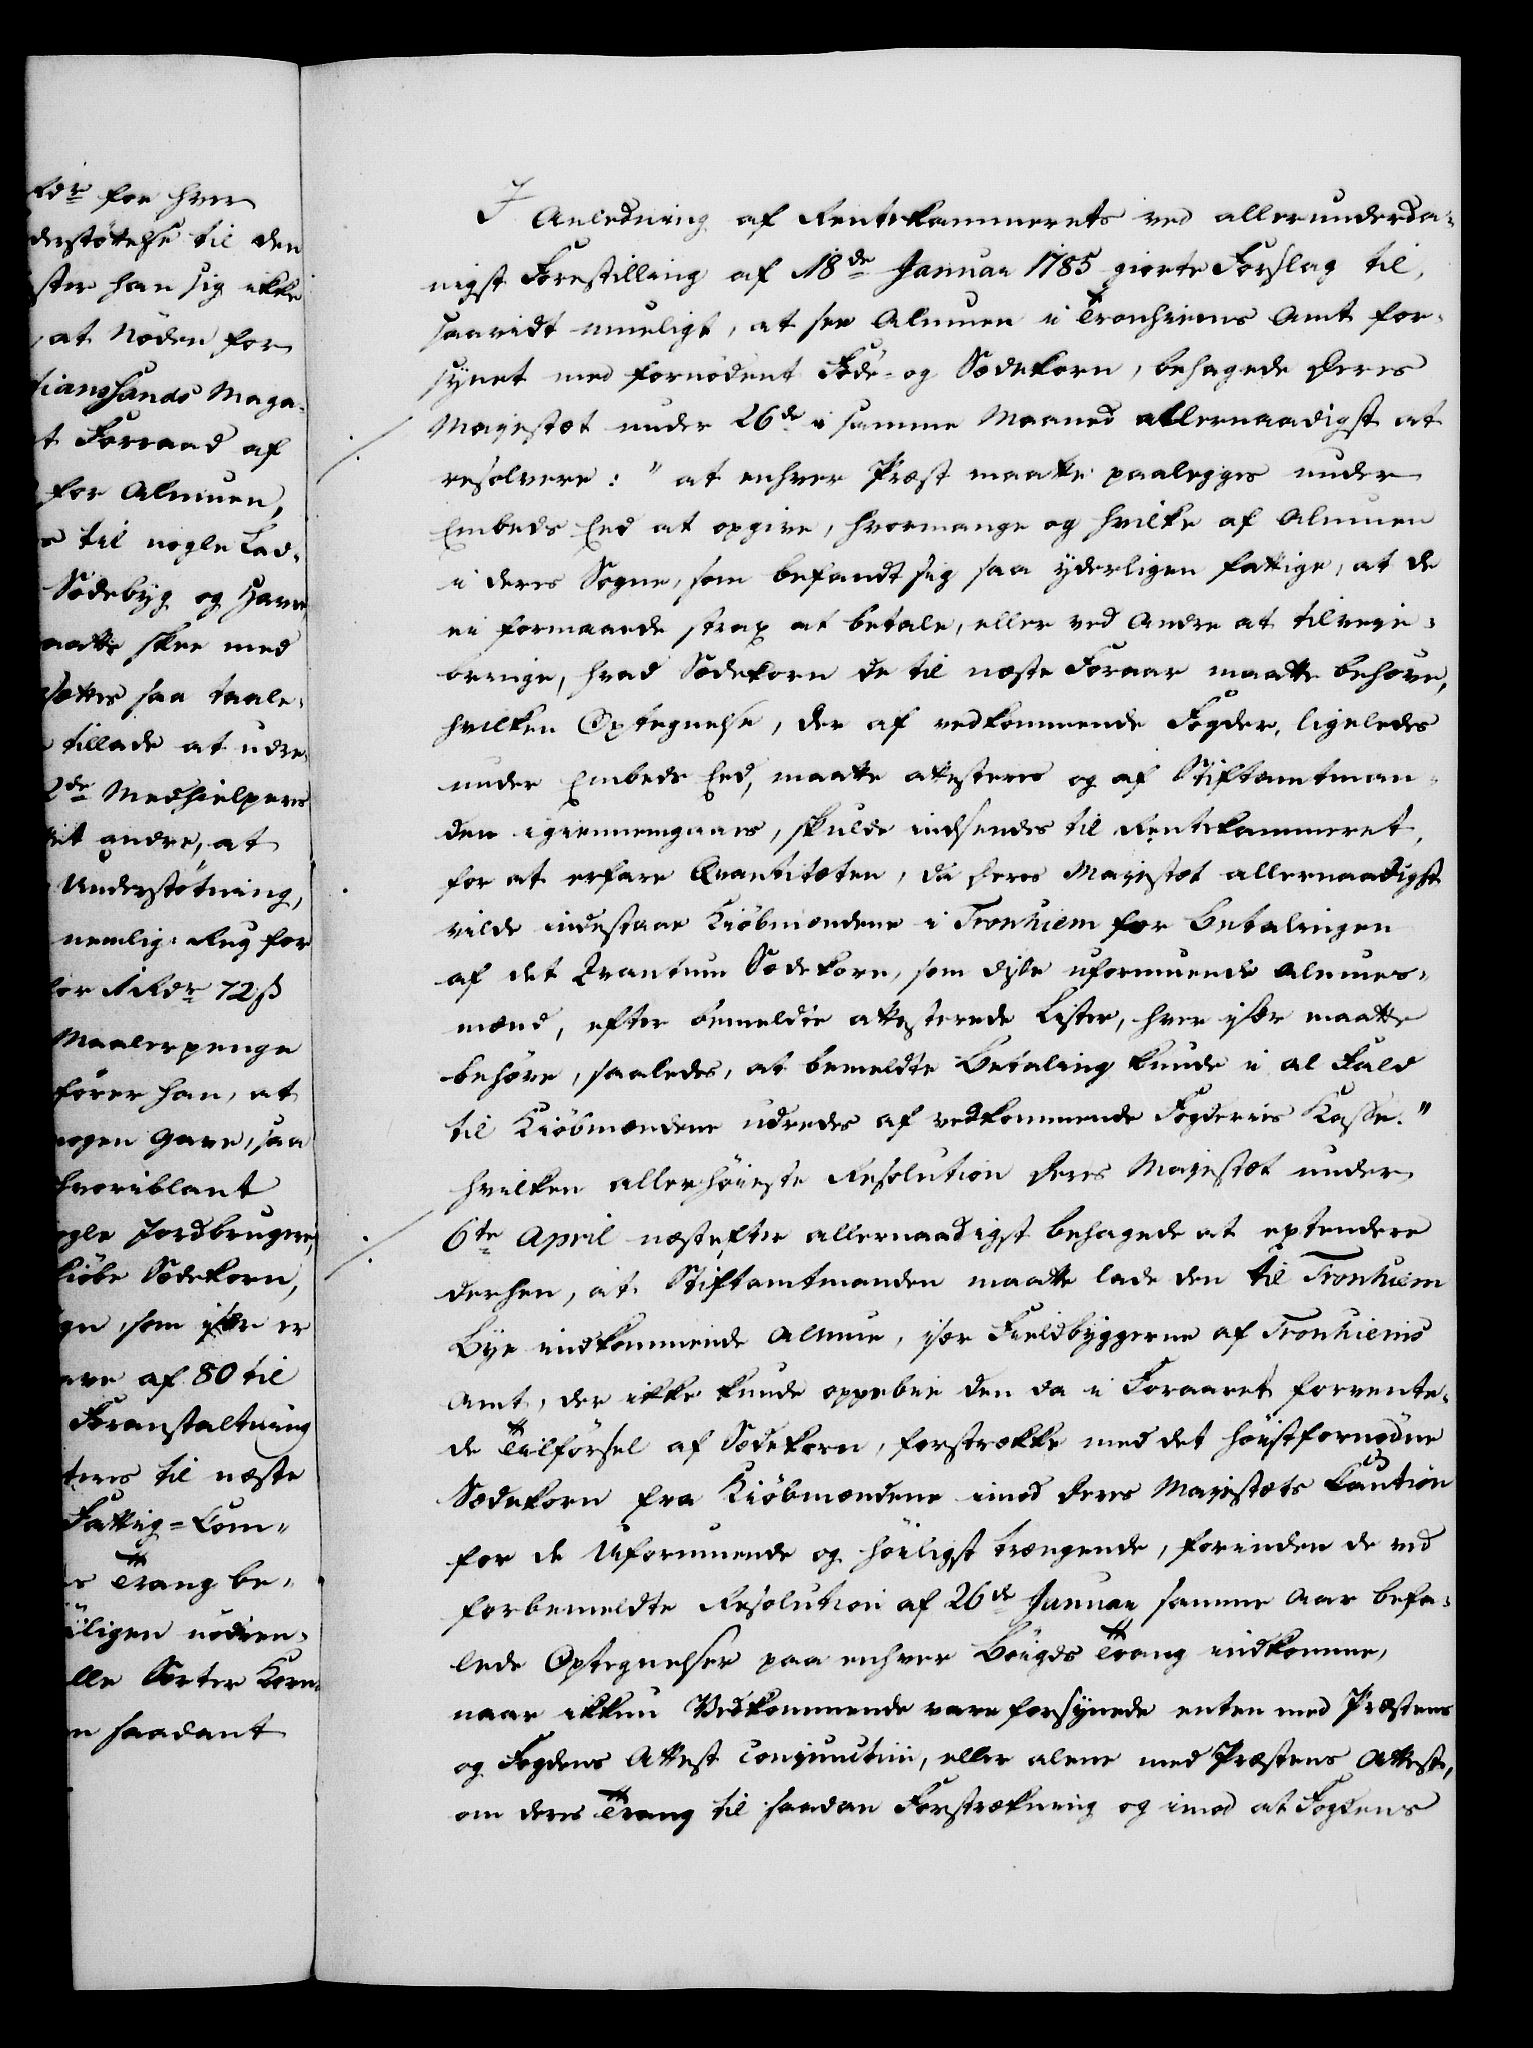 Rdr for hver
derstøttelse til den
ster han sig ikke
, at Nøden for
tianssands Maga-
t Forraad af
for Almuen,
s til nogle Lad-
Sædebyg og Havre
aatte skee med
sættes saa taale-
tillade at udre-
2de Medhielpere
it andre, at
Understøtning,
nemlig: Rug for
for 1 Rdr 72 ß
Maalerpenge
fører han, at
nogen Gave, saa
hvoriblant
gle Jordbrugere,
kiøbe Sædekorn,
gn, som især er
are af 80 til
Foranstaltning
teres til næste
Fattig-Com-
s Trang be-
iligen nødven-
lle Sorter Korn
n saadant
I Anledning af Rentekammerets ved allerunderda-
nigst Forestilling af 18de Januar 1785 giorte Forslag til,
saavidt mueligt, at see Almuen i Tronhiems Amt for-
synet med fornødent Føde- og Sædekorn, behagede Deres
Majestæt under 26de i samme Maaned allernaadigst at
resolvere: "at enhver Præst maatte paalegges under
Embeds Eed at opgive, hvormange og hvilke af Almuen
i deres Sogne, som befandt sig saa yderligen fattige, at de
ei formaaede strax at betale, eller ved Andre at tilveie-
bringe, hvad Sædekorn de til næste Foraar maatte behøve,
hvilken Optegnelse, der af vedkommende Fogder, ligeledes
under Embeds Eed, maatte attesteres og af Stiftamtman-
den igiennemgaaes, skulde indsendes til Rentekammeret,
for at erfare Qvantitæten, da Deres Majestæt allernaadigst
vilde indestaae Kiøbmændene i Tronhiem for Betalingen
af det Qvantum Sædekorn, som disse uformuende Almues-
mænd, efter bemeldte attesterede Lister, hver især maatte
behøve, saaledes, at bemeldte Betaling kunde i al Fald
til Kiøbmændene udredes af vedkommende Fogderies Kasse."
hvilken allerhøieste Resolution Deres Majestæt under
6te April næstefter allernaadigst behagede at extendere
derhen, at Stiftamtmanden maatte lade den til Tronhiem
Bye indkommende Almue, især Fieldbyggerne af Tronhiems
Amt, der ikke kunde oppebie den da i Foraaret forvente-
de Tilførsel af Sædekorn, forstrække med det høistfornødne
Sædekorn fra Kiøbmændene imod Deres Majestæts Caution
for de Uformuende og høiligst trængende, forinden de ved
forbemeldte Resolution af 26de Januar samme Aar befa-
lede Optegnelser paa enhver Bøigds Trang indkomme,
naar ikkun Vedkommende vare forsynede enten med Præstens
og Fogdens Attest conjunctim, eller alene med Præstens Attest,
om deres Trang til saadan Forstrækning og imod at Fogdens